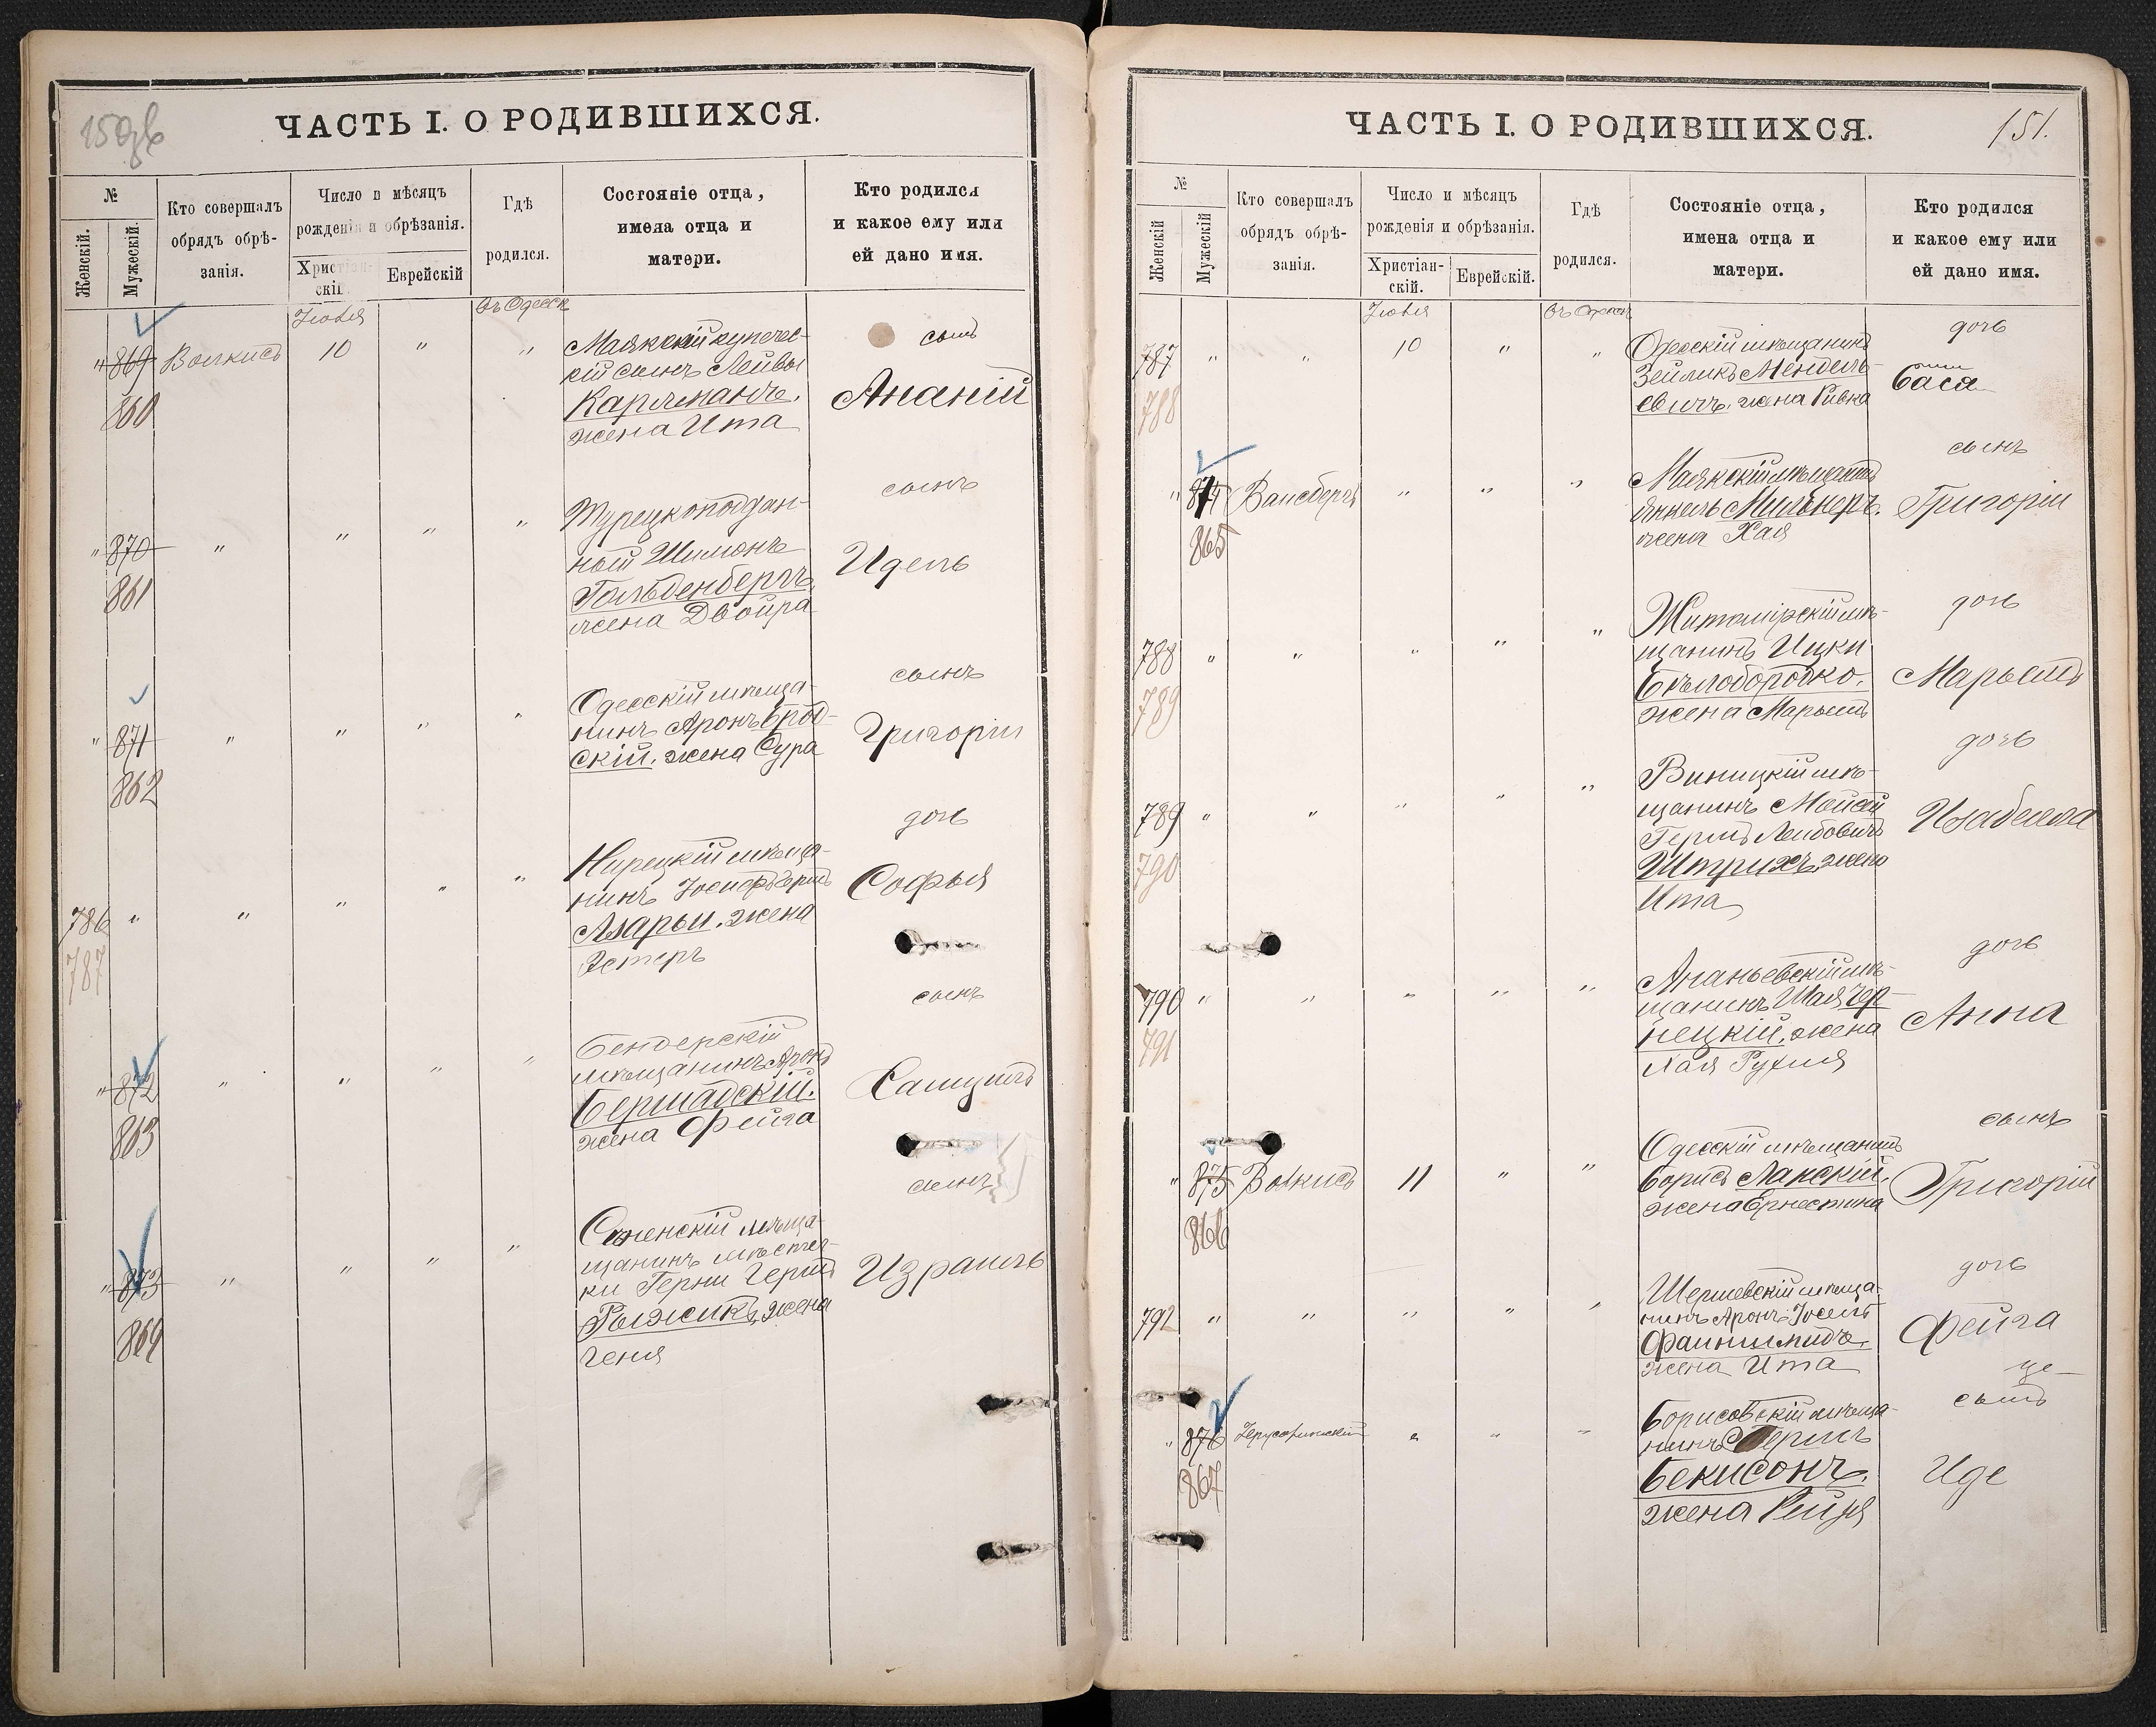 150об
ЧАСТЬ I. О РОДИВШИХСЯ.
№
Женскій.
Мужескій.
Кто совершалъ
обрядъ обрѣ-
занія.
Число и мѣсяцъ
рожденія и обрѣзанія.
Христіан-
скій.
Еврейскій
Гдѣ
родился.
Состояніе отца,
имена отца и
матери.
Кто родился
и какое ему или
ей дано имя.
въ Одессѣ
" 869
860
10
"
"
Маякскій купечес-
кій сынъ Лейвы
жена Ита
сынъ
Ананій
" 870
861
"
"
"
"
Турецкоподдан-
ный Шимонъ
Гольденбергъ,
жена Двойра
сынъ
Идель
" 871
862
"
"
"
"
Одесскій мѣща-
нинъ Аронъ Брод-
скій. жена Сура
сынъ
Григорій
786 "
787
"
"
"
"
мѣща-
нинъ
Азарьи. жена
Эстеръ
дочь
Софья
" 872
863
"
"
"
"
Бендерскій
мѣщанинъ Аронъ
Бершадскій.
жена Фейга
сынъ
" 873
864
"
"
"
"
мѣща-
щанинъ мѣстеч-
ки
Рыжикъ, жена
Геня
сынъ
Израиль
ЧАСТЬ I. О РОДИВШИХСЯ.
151.
№
Женскій
Мужескій
Кто совершалъ
обрядъ обрѣ-
занія.
Число и мѣсяцъ
рожденія и обрѣзанія.
Христіан-
скій.
Еврейскій.
Гдѣ
родился.
Состояніе отца,
имена отца и
матери.
Кто родился
и какое ему или
ей дано имя.
787 "
788
"
10
"
"
Одесскій мѣщанинъ
Зейликъ Мендель-
евичъ. жена Ривка
дочь
Бася
" 874
865
"
"
"
Маякскій мѣщанинъ
Янкель Мильнеръ.
жена Хая
сынъ
Григорій
788 "
789
"
"
"
"
Житомірскій мѣ-
щанинъ Ицко
Бѣлобородко.
жена Марьемъ
дочь
789 "
790
"
"
"
"
Виницкій мѣ-
щанинъ Мойсей
Гершъ Лейбовичъ
Штрихъ, жена
Ита
дочь
Изабелла
790 "
791
"
"
"
"
Ананьевскій мѣ-
щанинъ Шая Чер-
нецкій. жена
Хая Рухля
дочь
Анна
" 875
866
11
"
"
Одесскій мѣщанинъ
Борисъ
жена Ернестина
сынъ
Григорій
792 "
"
"
"
"
Шершевскій мѣща-
нинъ Аронъ Іосель
Файншмидъ.
жена Ита
дочь
Фейга
" 876
867
"
"
"
Борисовскій мѣща-
нинъ
жена Рейзя
сынъ